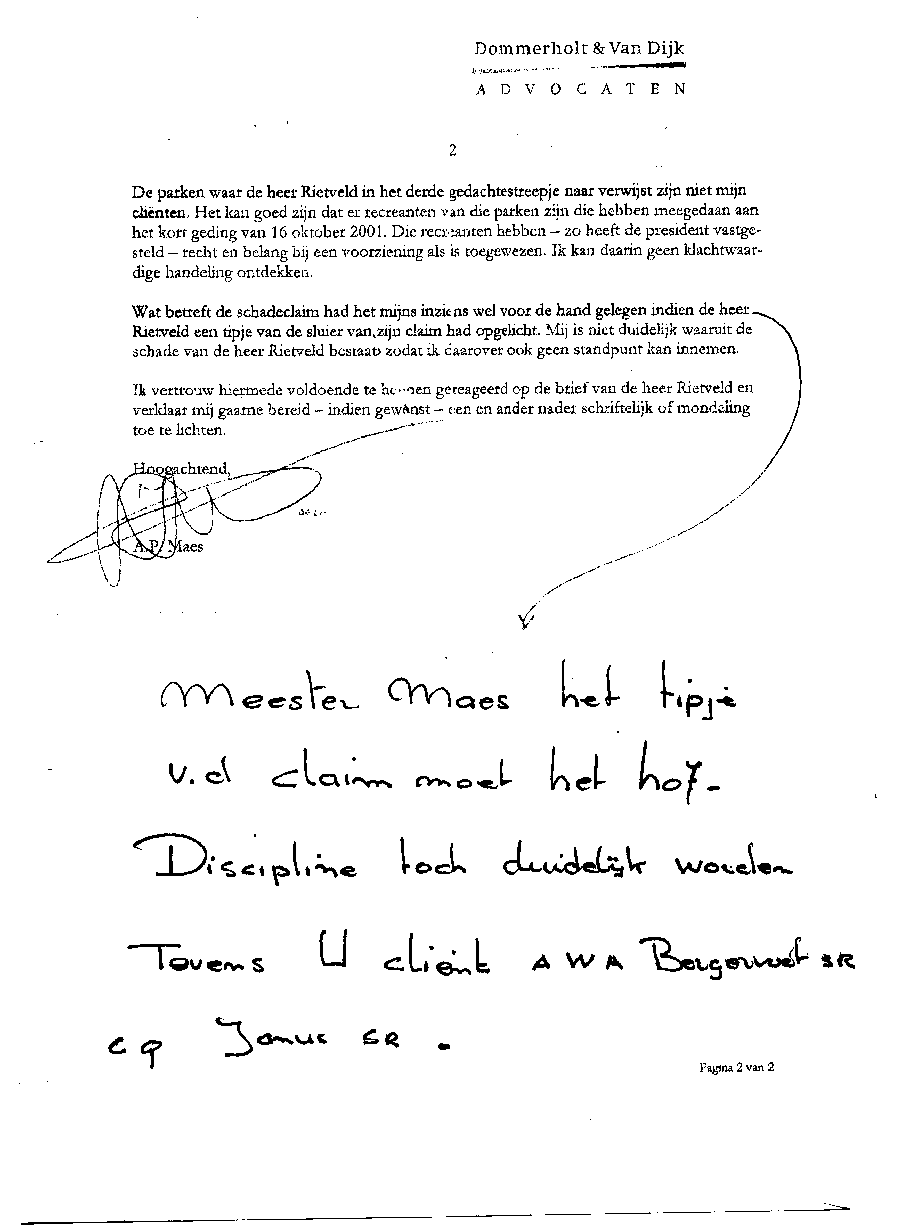 Dommerholt & Van Dijk
A D V O C A T E N
2
De parken waar de heer Rietveld in het derde gedachtestreepje naar verwijst zijn niet mijn
cliënten. Het kan goed zijn dat er recreanten van die parken zijn die hebben meegedaan aan
het kort geding van 16 oktober 2001. Die recreanten hebben – zo heeft de president vastge-
steld – recht en belang bij een voorziening als is toegewezen. Ik kan daarin geen klachtwaar-
dige handeling ontdekken.
Wat betreft de schadeclaim had het mijns inziens wel voor de hand gelegen indien de heer
Rietveld een tipje van de sluier van zijn claim had opgelicht. Mij is niet duidelijk waaruit de
schade van de heer Rietveld bestaat zodat ik daarover ook geen standpunt kan innemen.
Ik vertrouw hiermede voldoende te hebben gereageerd op de brief van de heer Rietveld en
verklaar mij gaarne bereid – indien gewenst – een en ander nader schriftelijk of mondeling
toe te lichten.
Hoogachtend,
A.P. Maes
Meester Maes het tipje
v.d claim moet het hof-
Discipline toch duidelijk worden
Tevens U cliënt A W A Bergerwet SR
c q Janus SR .
Pagina 2 van 2